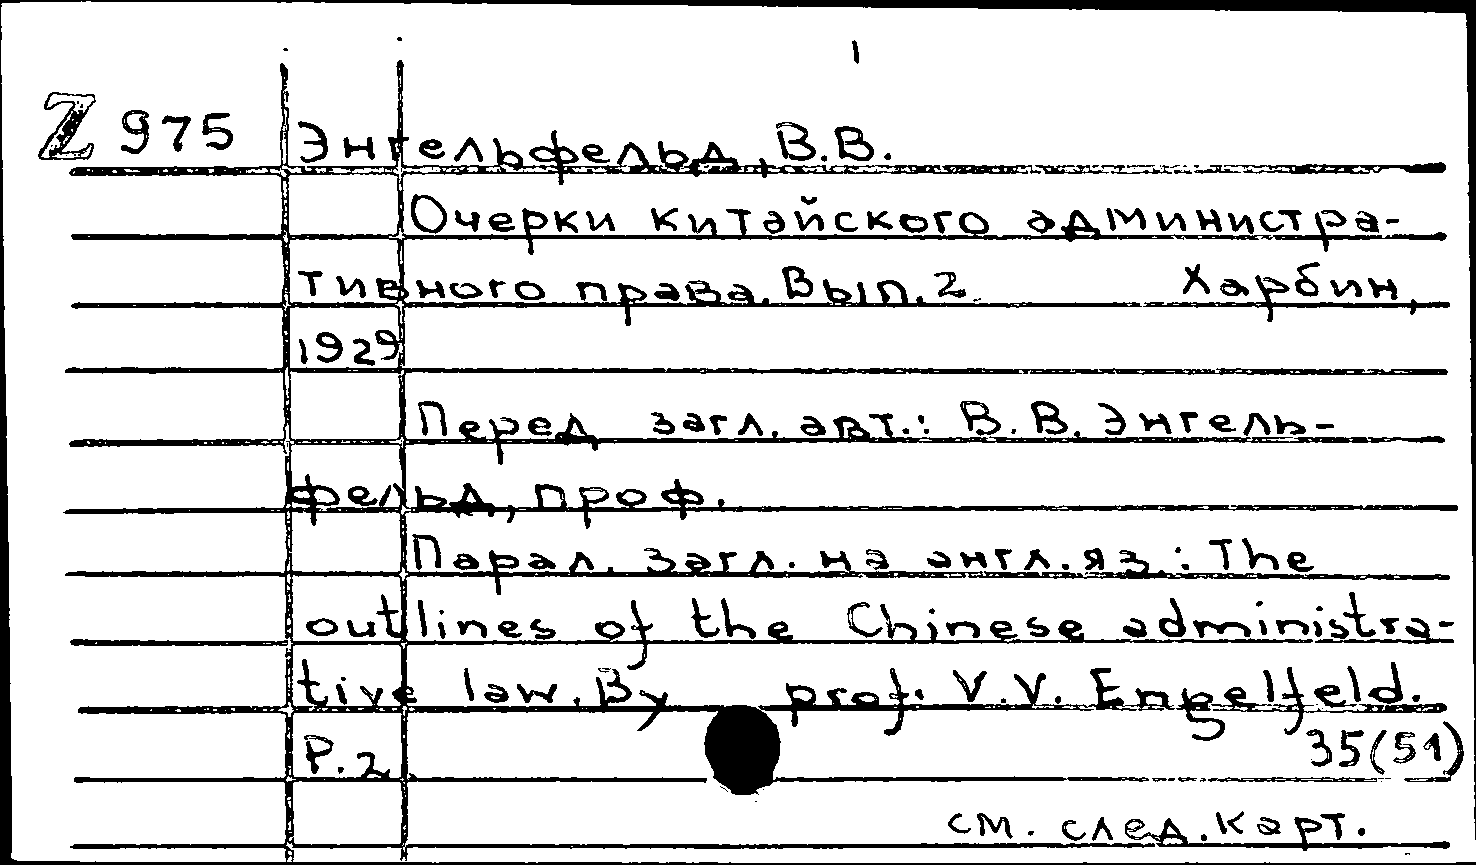 1
Z 975 Энгельфельд, В.В.
Очерки китайского администра-
тивного права. Вып. 2 Харбин,
1929
Перед загл. авт.: В.В. Энгель-
фельд, проф.
Парал. загл. на англ. яз.: The
outlines of the Chinese administra-
tive law. By prof. V.V. Engelfeld.
P. 2. 35(51)
см. след. карт.